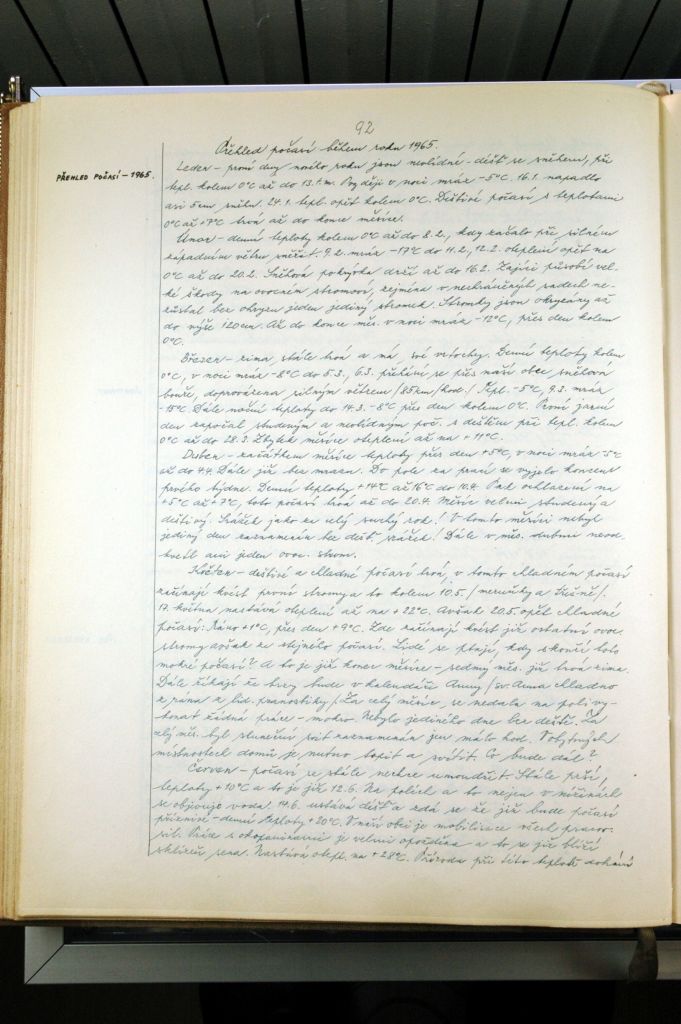 92
Přehled počasí během roku 1965.
PŘEHLED POČASÍ – 1965.
Leden – první dny nového roku jsou neelidné – déšť se sněhem, při
tepl. kolem 0°C až do 13.t.m. Později v noci mráz -5°C. 16.1. napadlo
asi 5cm sněhu. 24.1. tepl. opět kolem 0°C. Deštivé počasí s teplotami
0°C až +7°C trvá až do konce měsíce.
Únor – denní teploty kolem 0°C až do 8.2., kdy začalo při silném
západním větru sněžit. 9.2. mráz -17°C do 11.2., 12.2. oteplení opět na
0°C až do 20.2. Sněhová pokrývka drží až do 16.2. Zajíci působí vel-
ké škody na ovocném stromoví, zejména v nechráněných sadech ne-
zůstal bez ohryzu jeden jediný stromek. Stromky jsou okousány až
do výše 120cm. Až do konce měs. v noci mráz -12°C, přes den kolem
0°C.
Březen – zima, stále trvá a má své vrtochy. Denní teploty kolem
0°C, v noci mráz -8°C do 5.3., 6.3. přehnala se přes naší obec sněhová
bouře, doprovázena silným větrem /85km/hod./ Tepl. -5°C, 9.3. mráz
-15°C. Dále noční teploty do 14.3. -8°C přes den kolem 0°C. První jarní
den započal studeným a neelidným poč. s deštěm při tepl. kolem
0°C až do 28.3. Zbytek měsíce oteplení až na +11°C.
Duben – začátkem měsíce teploty přes den +5°C, v noci mráz -5°C
až do 4.4. Dále již bez mrazu. Do pole za prací se vyjelo koncem
prvého týdne. Denní teploty +14°C až 16°C do 10.4. Pak ochlazení na
+5°C až +7°C, toto počasí trvá až do 20.4. Měsíc velmi studený a
deštivý. Srážek jako za celý suchý rok! V tomto měsíci nebyl
jediný den zaznamenán bez dešť. srážek! Dále v měs. dubnu neod-
kvetl ani jeden ovoc. strom.
Květen – deštivé a chladné počasí trvá, v tomto chladném počasí
začínají kvést první stromy a to kolem 10.5. /meruňky a třešně/.
17. května nastává oteplení až na +22°C. Avšak 20.5. opět chladné
počasí: Ráno +1°C, přes den +9°C. Zde začínají kvést již ostatní ovoc.
stromy avšak za stejného počasí. Lidé se ptají, kdy skončí toto
mokré počasí? A to je již konec měsíce – sedmý měs. již trvá zima.
Dále říkají že brzy bude v kalendáři Anny /sv. Anna chladno
z rána z lid. pranostiky/. Za celý měsíc, se nedala na poli vy-
konat žádná práce – mokro. Nebylo jediného dne bez deště. Za
celý měs. byl sluneční svit zaznamenán jen málo hod. V obytných
místnostech domů je nutno topit a svítit. Co bude dál?
Červen – počasí se stále nechce umoudřit. Stále prší,
teploty +10°C a to je již 12.6. Na polích a to nejen v nížinách
se objevuje voda. 14.6. ustává déšť a zdá se že již bude počasí
příznivé – denní teploty +20°C. V naší obci je mobilizace všech pracov.
sil. Práce s okopaninami je velmi opožděna a to se již blíží
sklizeň sena. Nastává otepl. na +28°C. Příroda při této teplotě dohání